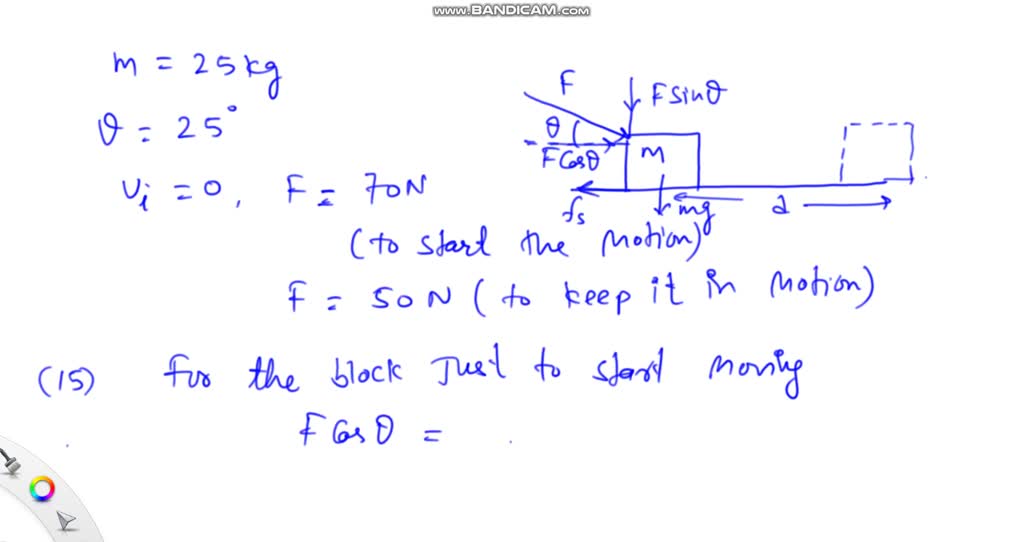 www.BANDICAM.com
m = 25 kg
θ = 25°
v_i = 0, F = 70N
(to start the Motion)
F = 50N (to keep it in Motion)
F
F sinθ
θ
F Cosθ
M
f_s
mg
d
(15) For the block Just to start moving
F Cos θ =